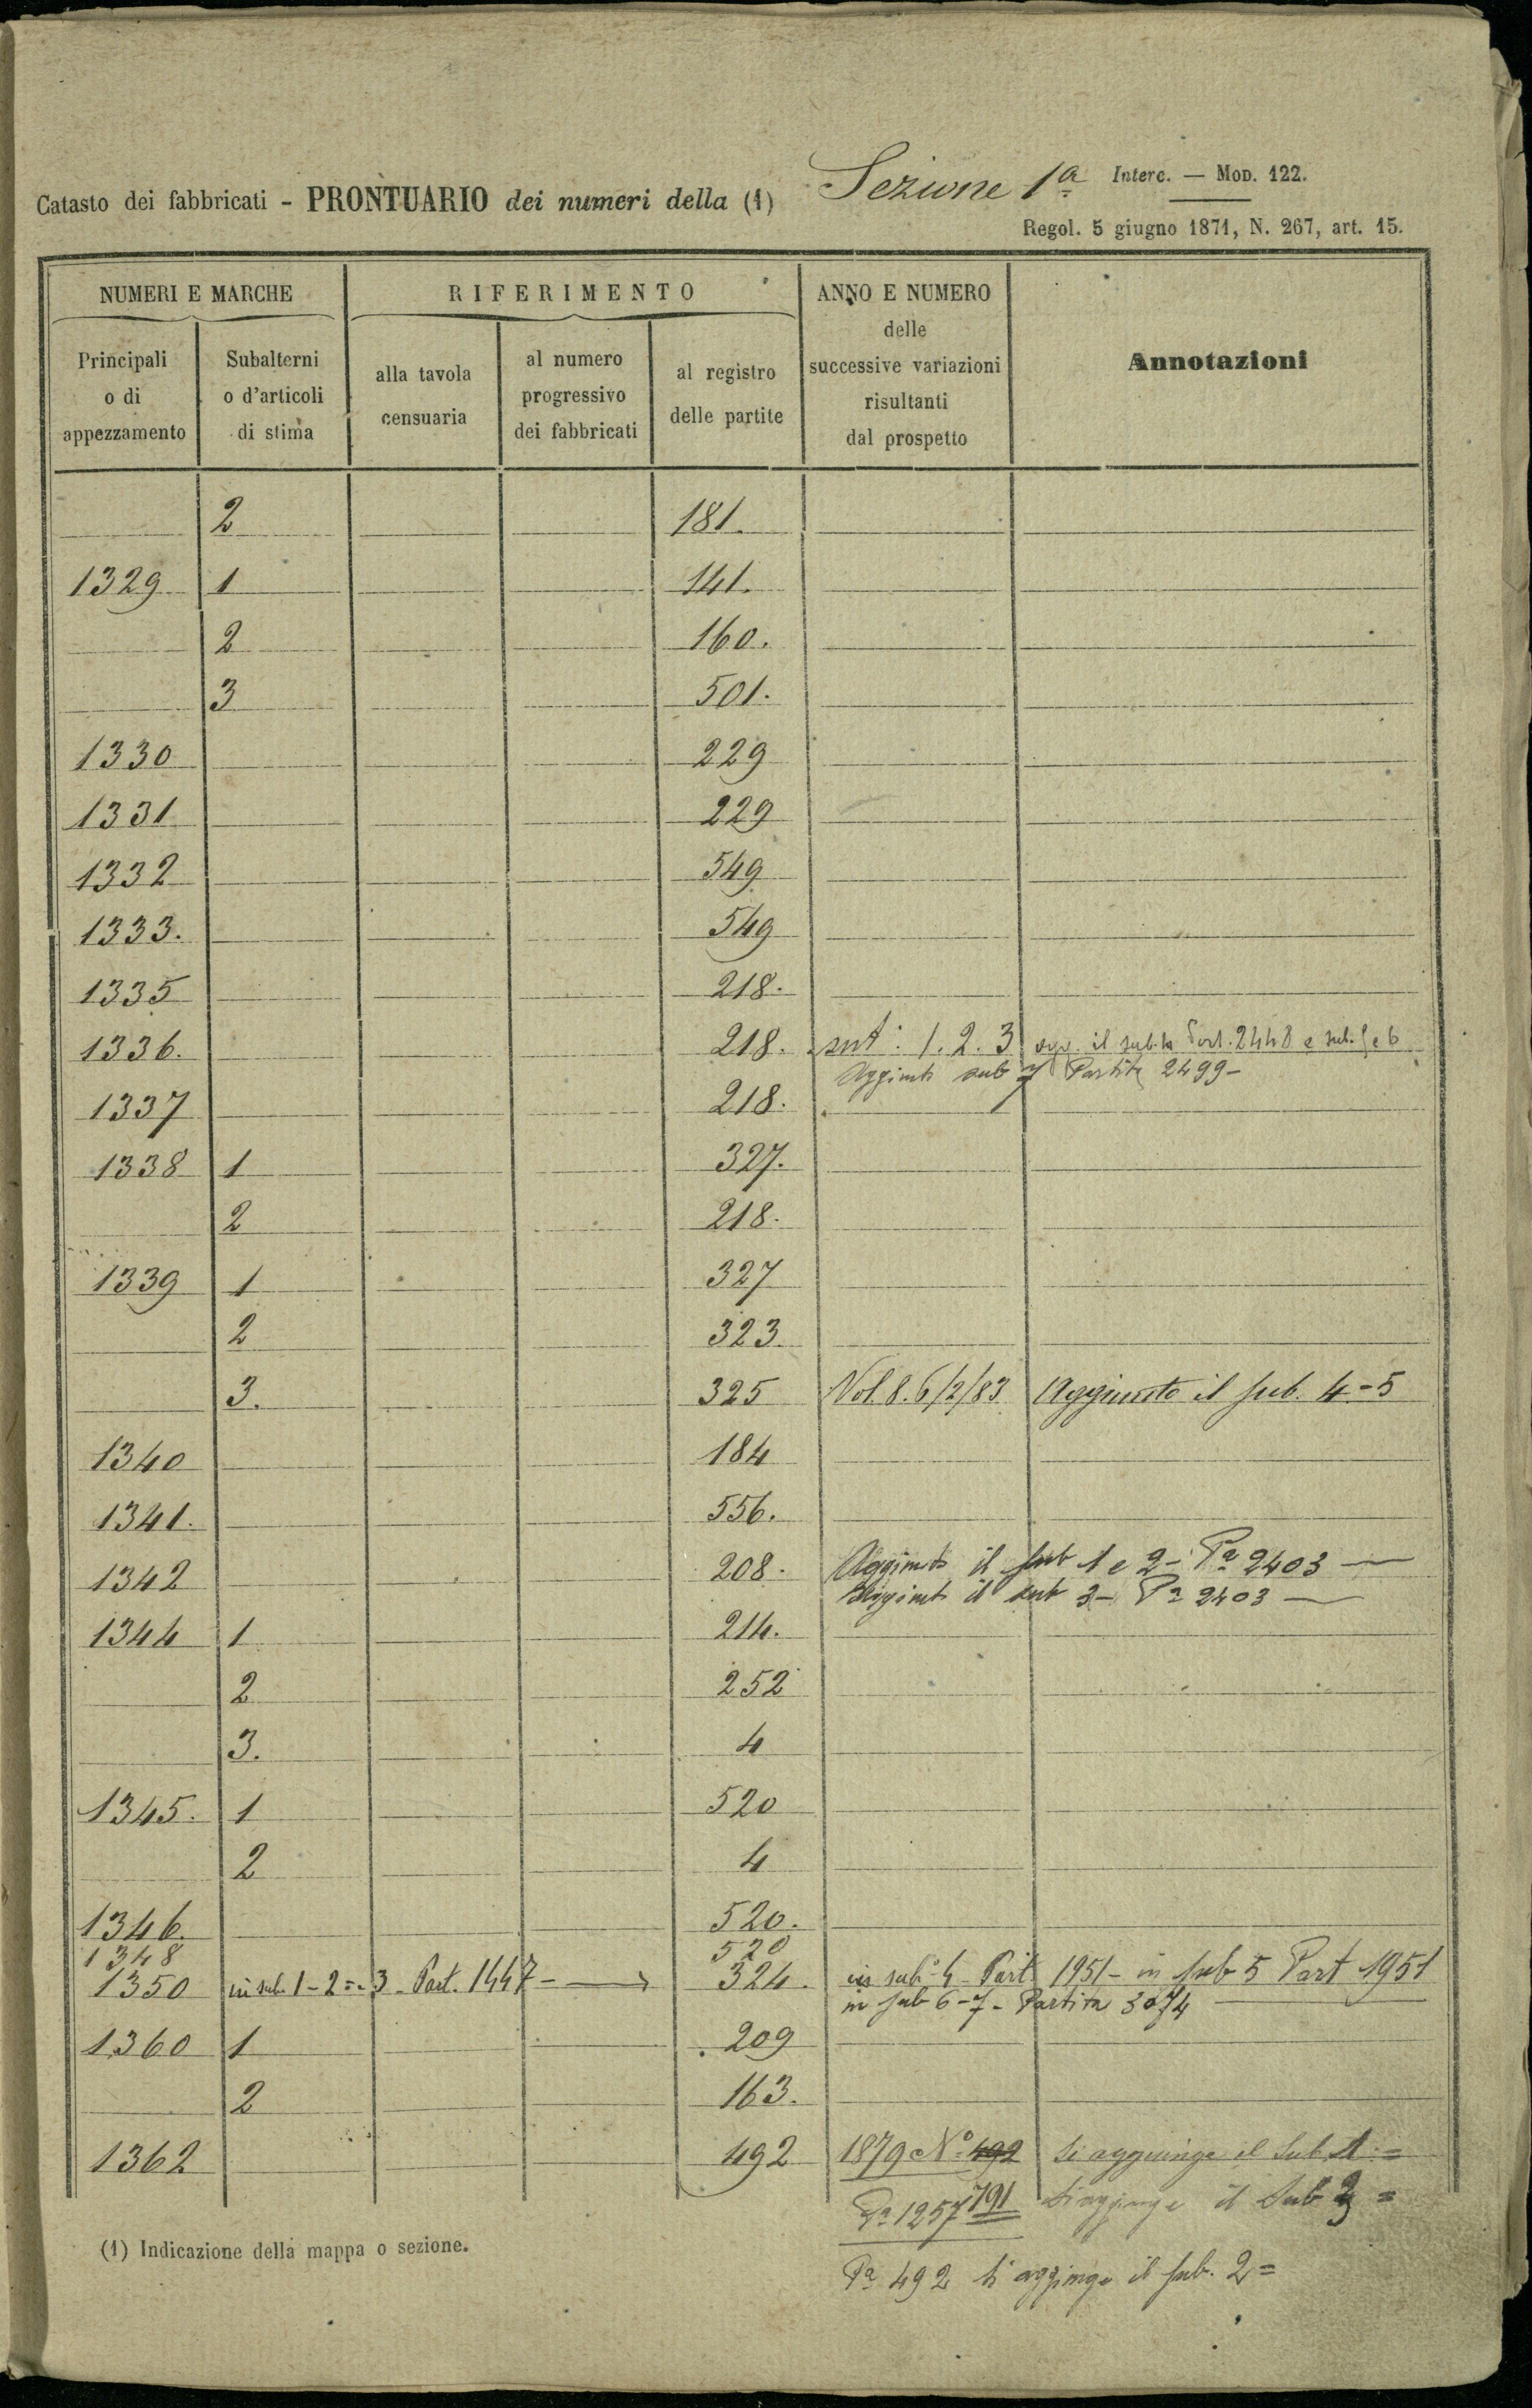 Catasto dei fabbricati - PRONTUARIO dei numeri della (1) Sezione 1ª Interc. — MOD. 122.
Regol. 5 giugno 1871, N. 267, art. 15.
NUMERI E MARCHE RIFERIMENTO ANNO E NUMERO delle successive variazioni risultanti dal prospetto Annotazioni
Principali o di appezzamento Subalterni o d'articoli di stima alla tavola censuaria al numero progressivo dei fabbricati al registro delle partite
2 181.
1329 1 141.
2 160.
3 501.
1330 229
1331 229
1332 549
1333. 549
1335 218.
1336. 218. 1. 2. 3 il sub. 2448 e sub. 5 e 6
sub 7 Partita 2499 -
1337 218.
1338 1 327.
2 218.
1339 1 327
2 323.
3. 325 Vol. 8. 6/2/83 Aggiunto il sub. 4=5
1340 184
1341. 556.
1342 208. Aggiunto il sub 1 e 2 - Pª 2403 —
Aggiunto il sub 3 - Pª 2403 —
1344 1 214.
2 252
3. 4
1345. 1 520
2 4
1346. 520.
1348 520
1350 in sub. 1-2=3 - Part. 1447 - 324. in sub. 4 - Part. 1951 - in sub 5 Part 1951
in sub 6-7 - Partita 3074
1360 1 209
2 163.
1362 492 1879 Nº 492 Si aggiunge il Sub. 1. =
Pª 1257 791 Si aggiunge il Sub 3 =
(1) Indicazione della mappa o sezione.
Pª 492 Si aggiunge il sub. 2 =